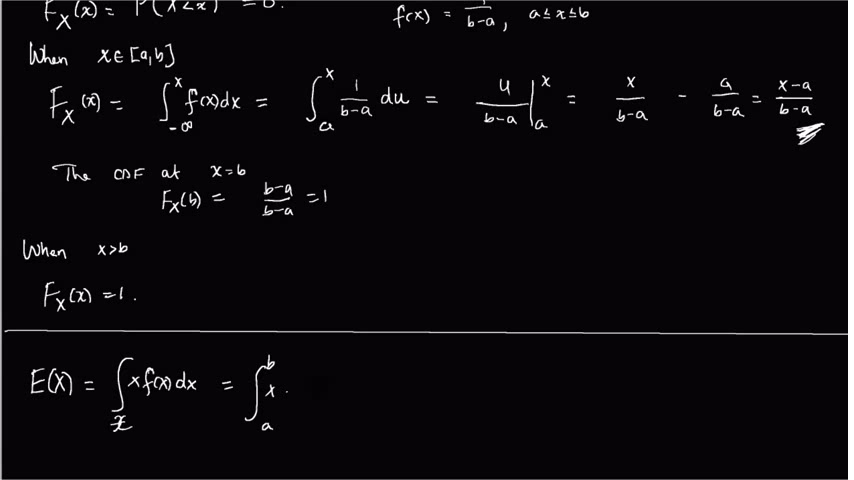 F_X(x) = P(X<x) = 0.
f(x) = 1/(b-a), a ≤ x ≤ b
When x ∈ [a,b]
F_X(x) = ∫_{-∞}^{x} f(x)dx = ∫_a^x 1/(b-a) du = u/(b-a) |_a^x = x/(b-a) - a/(b-a) = (x-a)/(b-a)
The CDF at x=b
F_X(b) = (b-a)/(b-a) = 1
When x>b
F_X(x) = 1.
E(X) = ∫_x x f(x) dx = ∫_a^b x .